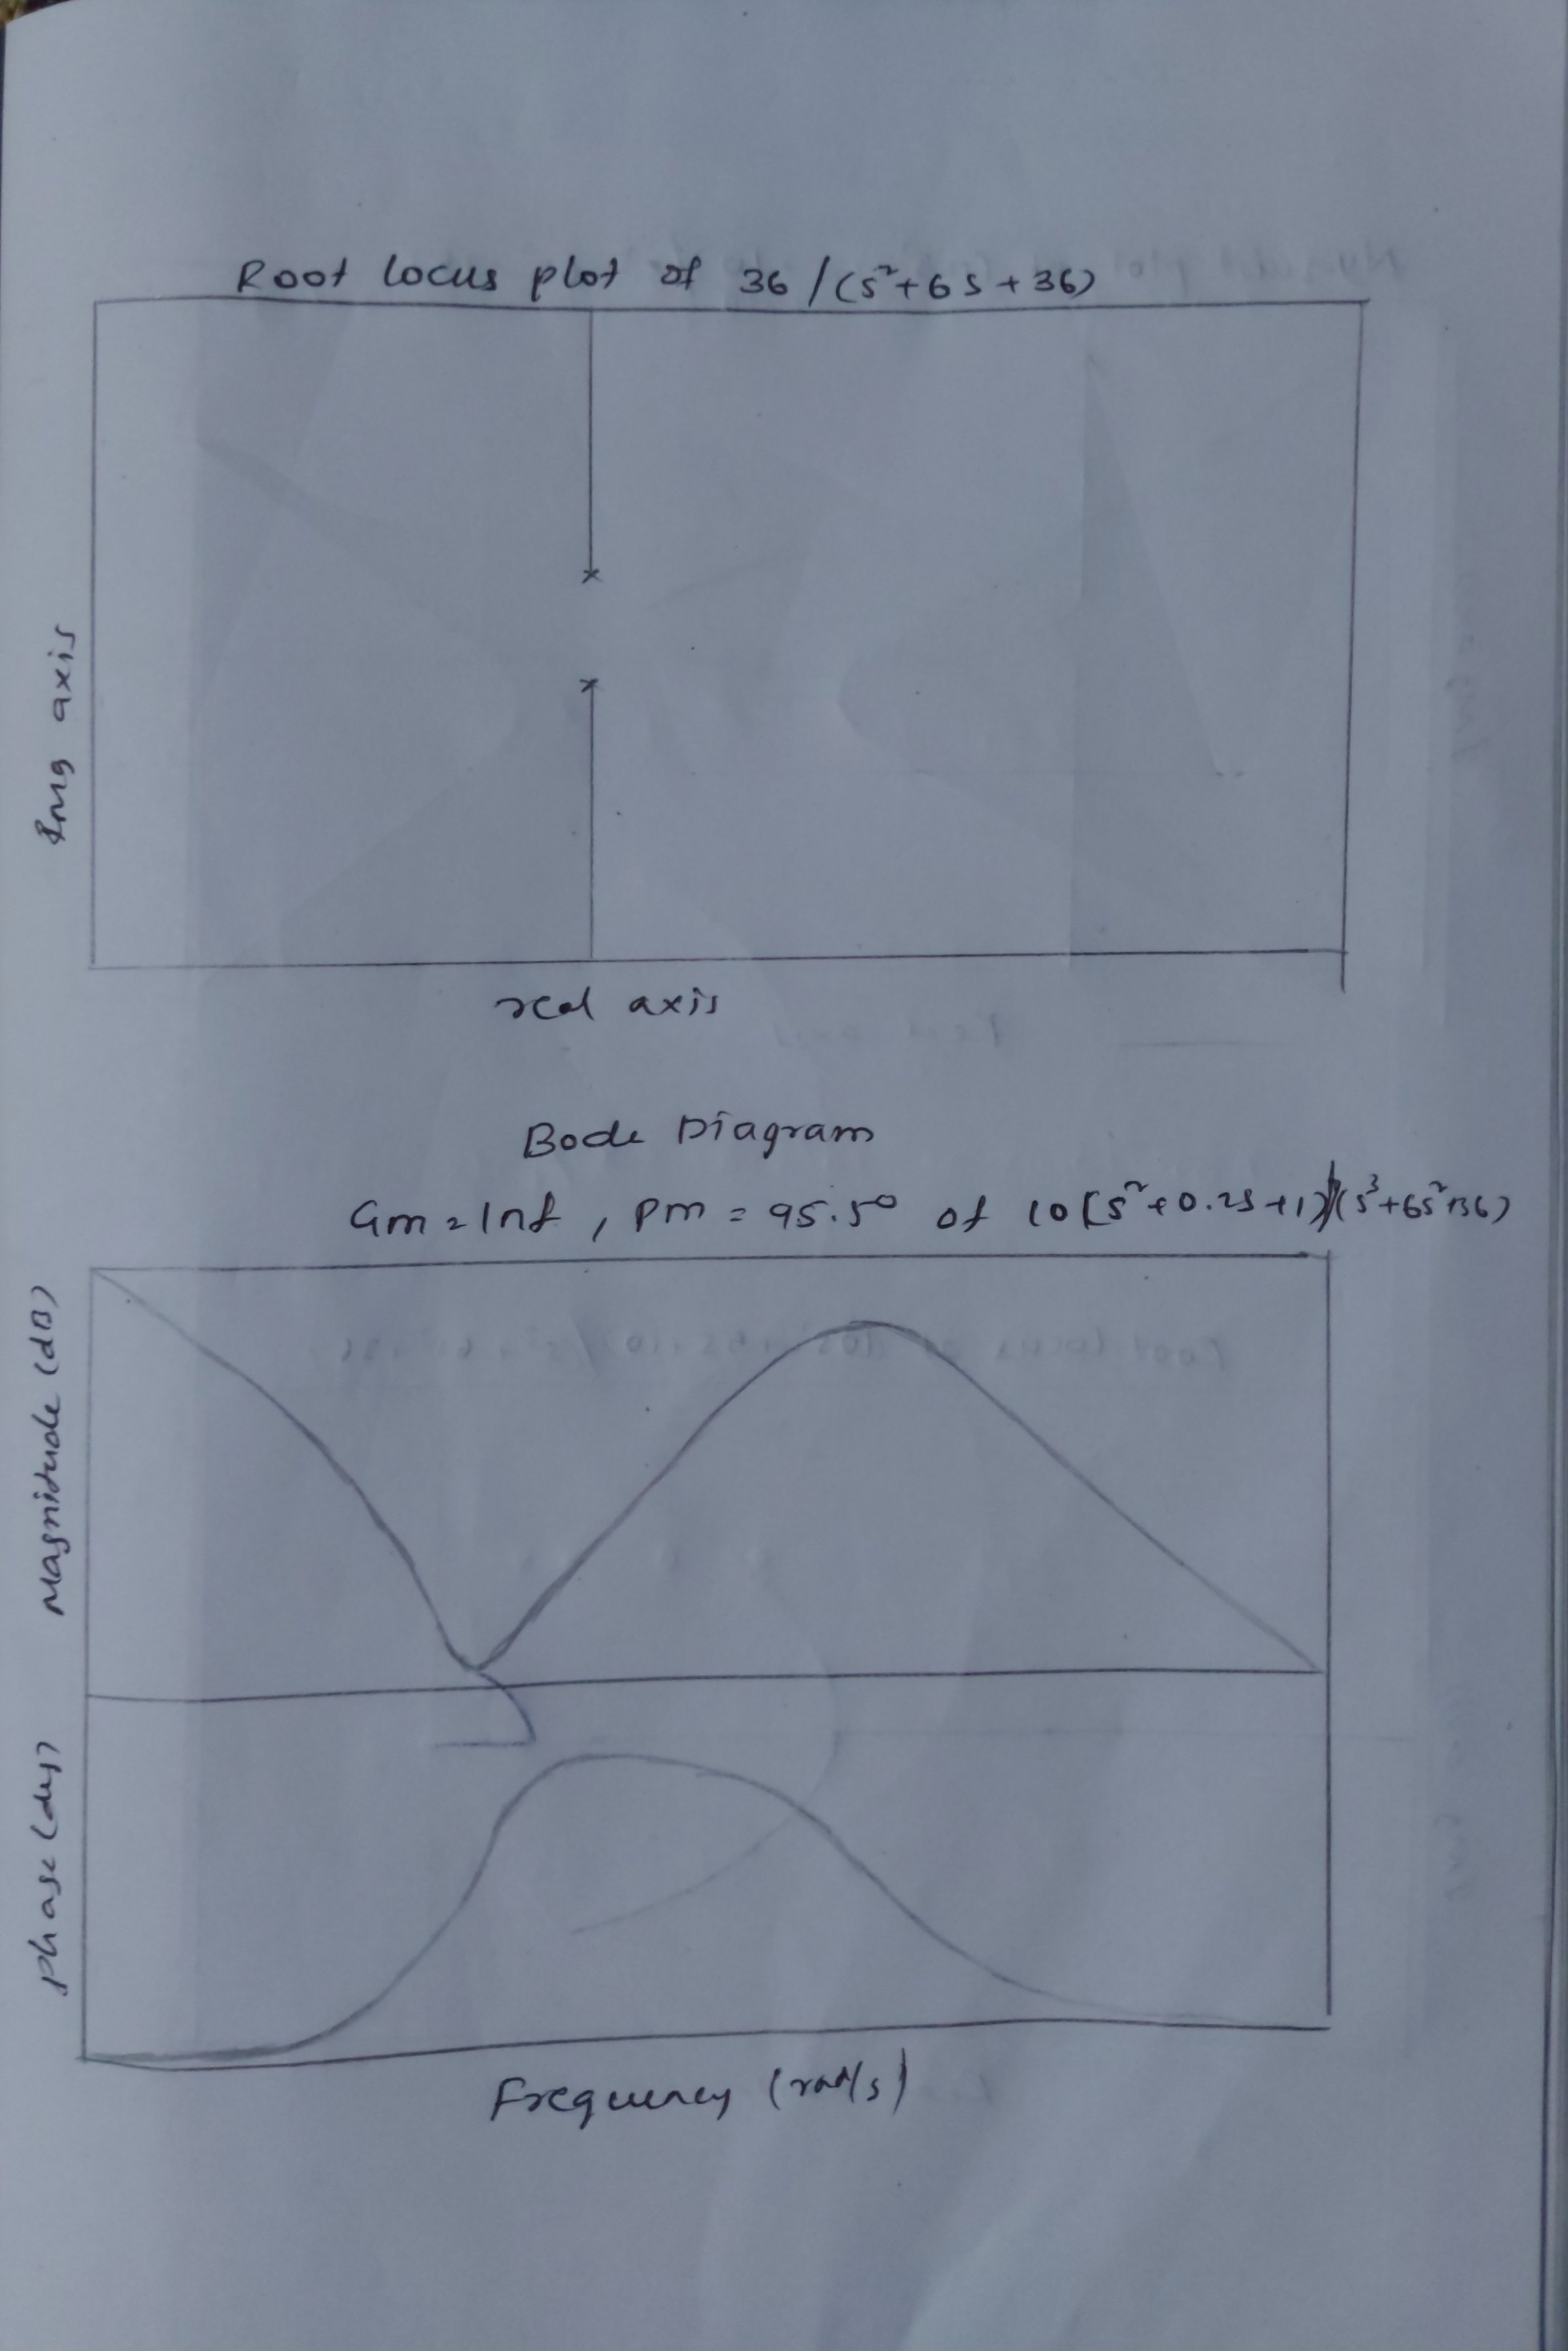 Root locus plot of 36 / (s²+6s+36)
Img axis
real axis
Bode Diagram
Gm = Inf , Pm = 95.5° of 10[s²+0.2s+1)/(s³+6s²+36)
Magnitude (dB)
phase (deg)
Frequency (rad/s)